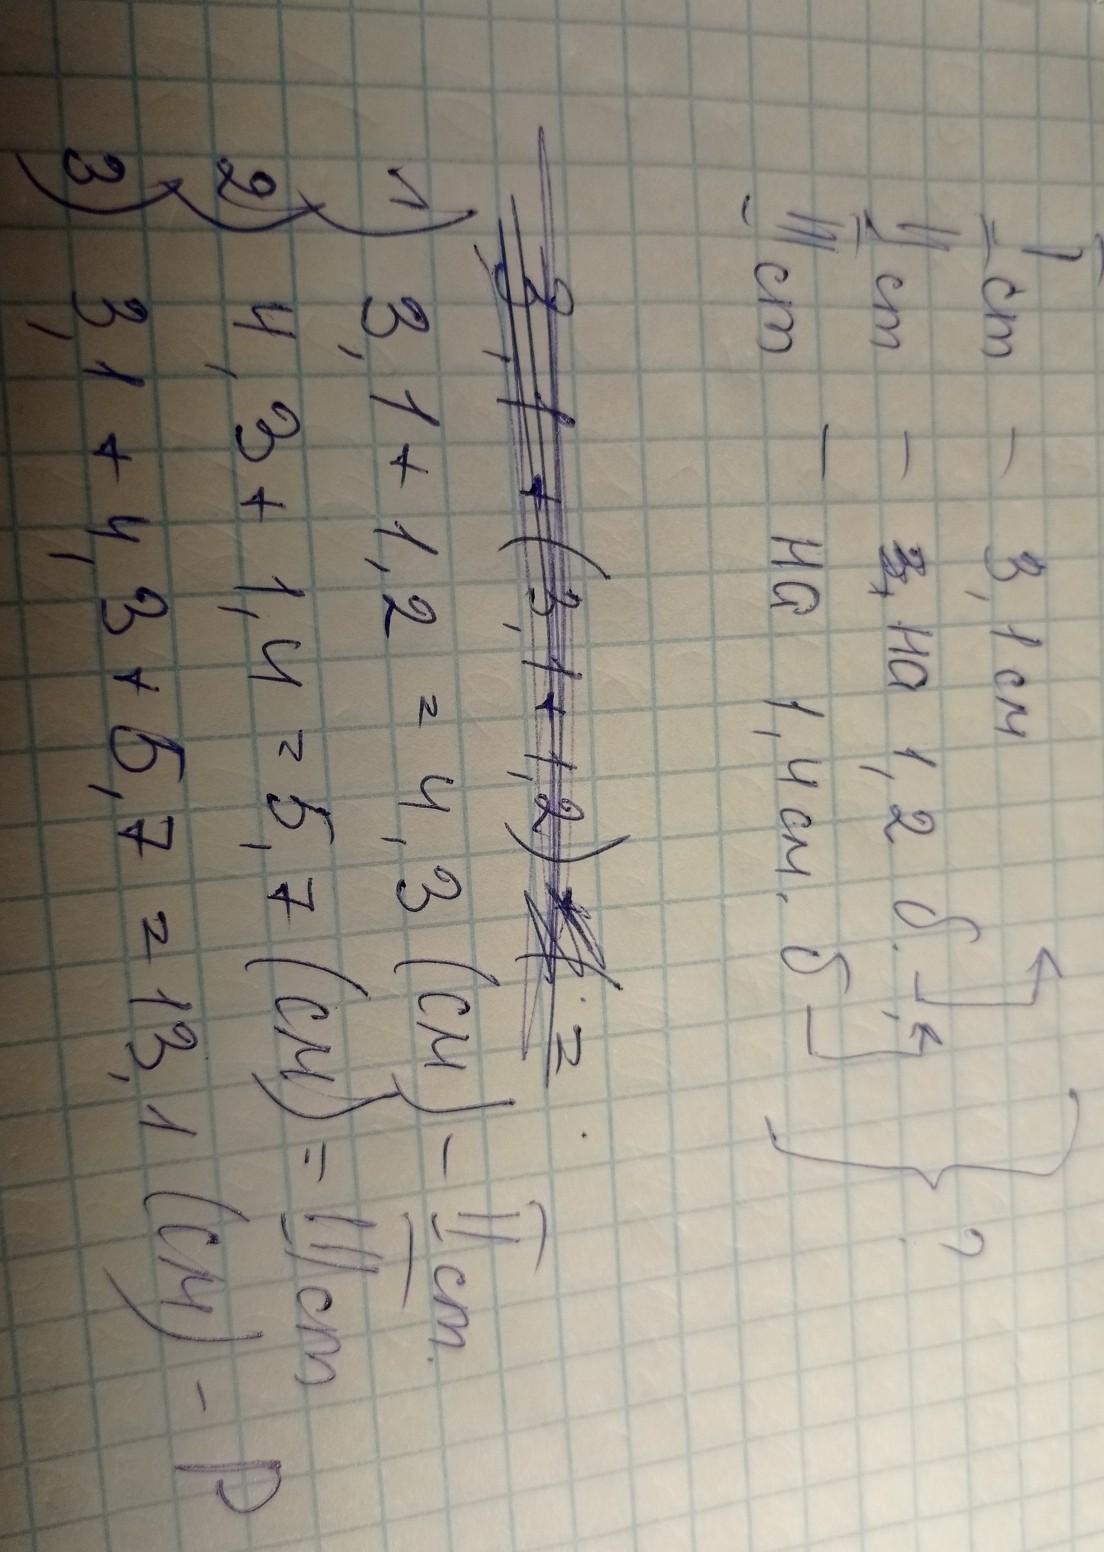 I ст - 3,1 см
II ст - на 1,2 б.
III ст - на 1,4 см. б
?
3,1 + (3,1 + 1,2)
1) 3,1 + 1,2 = 4,3 (см) - II ст.
2) 4,3 + 1,4 = 5,7 (см) = III ст
3) 3,1 + 4,3 + 5,7 = 13,1 (см) - P